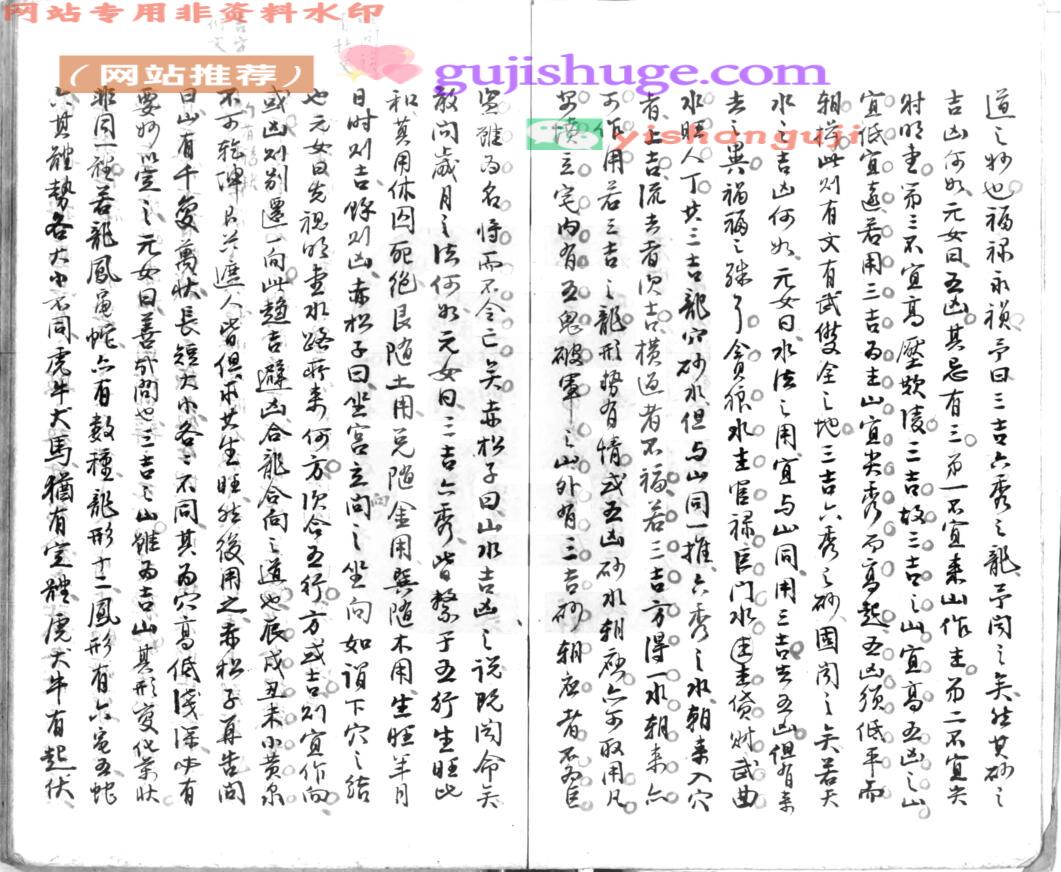 网站专用非资料水印
（网站推荐）
gujishuge.com
yishanguji
道之妙也福禄永祯予曰三吉六秀之龙予闻之矣然其砂之
吉凶何如元女曰五凶其忌有三第一不宜来山作主第二不宜尖
射明堂第三不宜高壓欺陵三吉故三吉之山宜高五凶之山
宜低宜遠若用三吉为主山宜尖秀而高起五凶须低平而
朝揖此则有文有武雙全之地三吉六秀之砂固闻之矣若夫
水之吉凶何如元女曰水法之用宜与山同用三吉去五凶但有来
去之異禍福之殊了貪狼水主官禄巨門水主貨财武曲
水旺人丁其三吉龍穴砂水但与山同一推六秀之水朝来入穴
者上吉流去者次吉横过者不福若三吉方得一水朝来亦
可作用若三吉之龍形势有情或五凶砂水朝应亦可取用凡
安墳立宅内有五鬼破軍之山外有三吉砂朝应者不为臣
宦雖为名将而不令亡矣赤松子曰山水吉凶之说既闻命矣
敢问歲月之法何如元女曰三吉六秀皆繫于五行生旺此
和莫用休囚死绝艮随土用兑随金用巽随木用生旺年月
日时则吉餘则凶赤松子曰坐宫立向之坐向如谓下穴之结
也元女曰先视明堂水路所来何方次合五行方或吉则宜作向
或凶则别遷一向此趋吉避凶合龍合向之道也辰戌丑未小黄泉
不可乾陣只共遮人皆俱求其生旺然後用之赤松子再告问
曰山有千变萬状長短大小各之不同其为穴高低浅深必有
要妙以定之元女曰善哉问也三吉之山雖为吉山其形变化萬状
非同一體若龍鳳龜蛇亦有数種龍形十二鳳形有六龜五蛇
六其體势各大小不同虎牛犬馬猶有定體虎犬牛有起伏